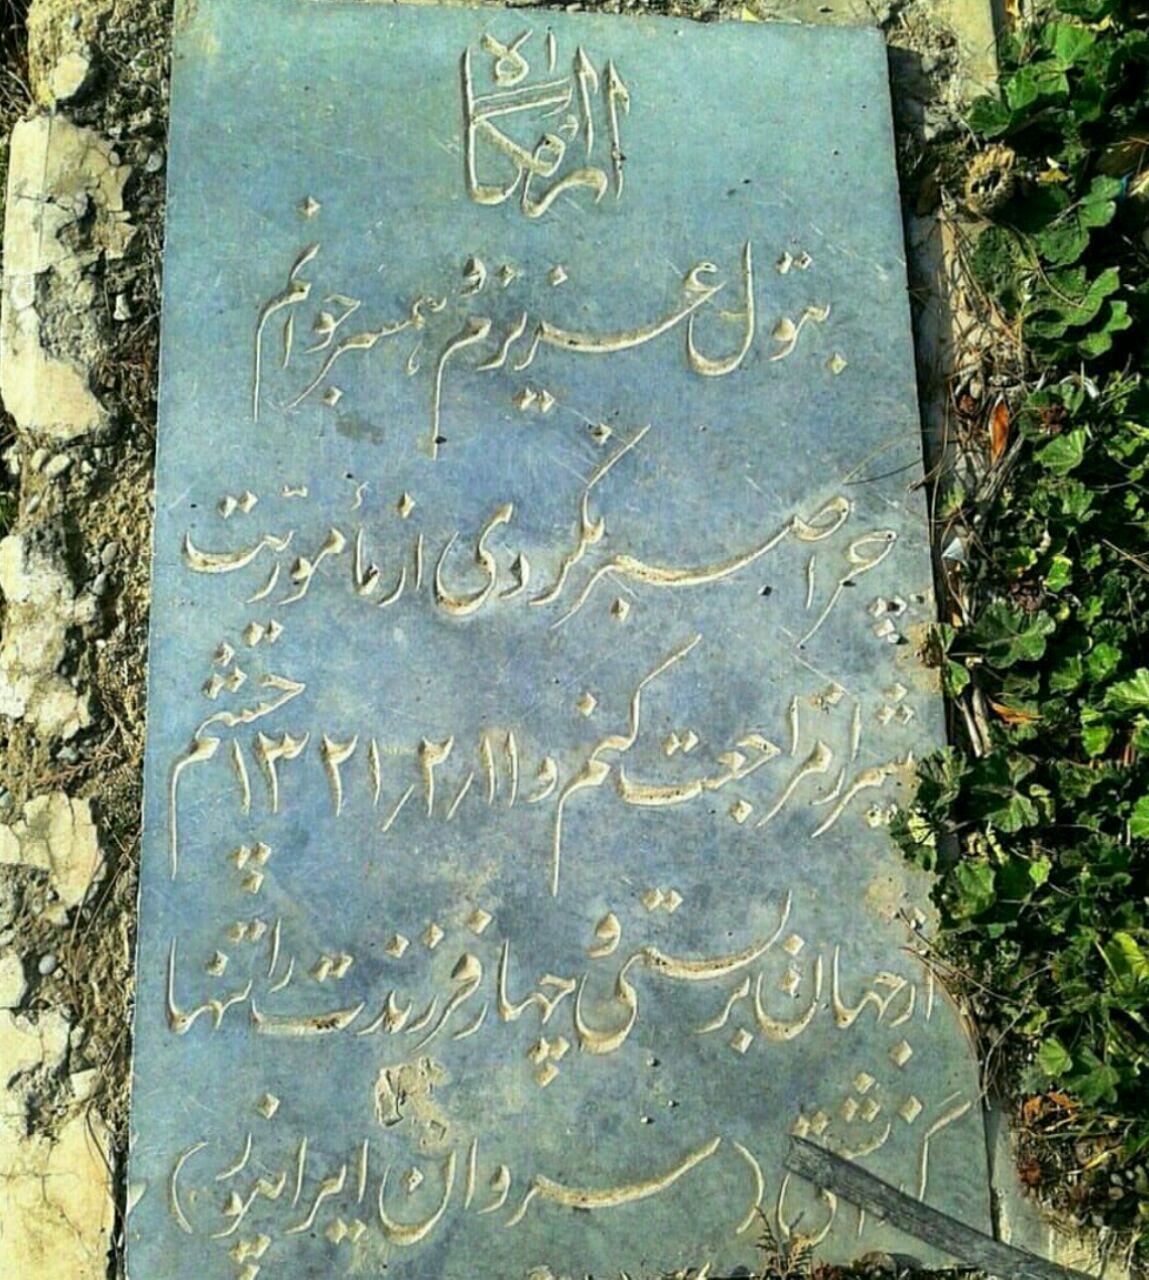 آرامگاه
بتول عزیزم و همسر جوانم
چرا صبر نکردی از مأموریت
شیراز مراجعت کنم و ۱۳۲۱/۲/۱۱ چشم
از جهان بربستی و چهار فرزندت را تنها
گذاشتی (سروان ایرانپور)